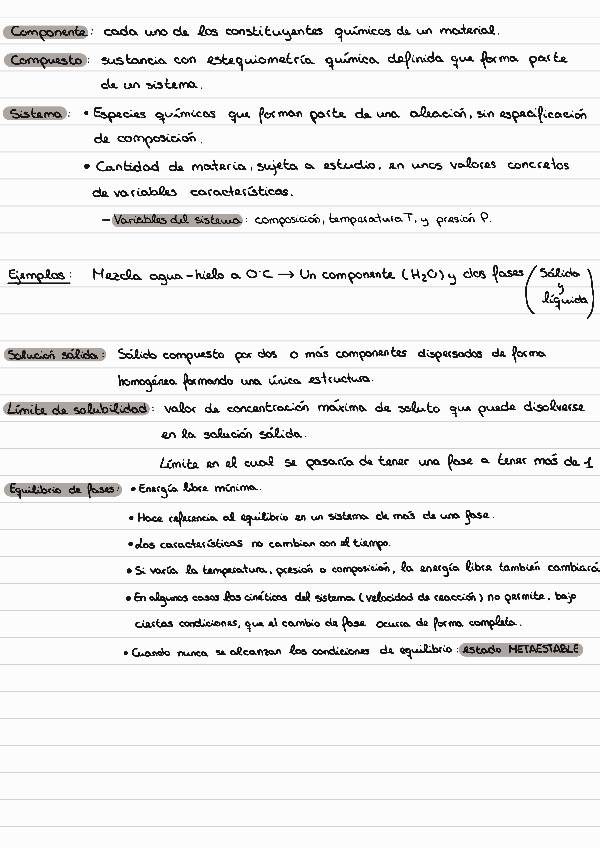 Componente: cada uno de los constituyentes químicos de un material.
Compuesto: sustancia con estequiometría química definida que forma parte
de un sistema.
Sistema: • Especies químicas que forman parte de una aleación, sin especificación
de composición.
• Cantidad de materia, sujeta a estudio, en unos valores concretos
de variables características.
– Variables del sistema: composición, temperatura T, y presión P.
Ejemplos: Mezcla agua-hielo a 0°C → Un componente (H₂O) y dos fases (Sólida
y
líquida)
Solución sólida: Sólido compuesto por dos o más componentes dispersados de forma
homogénea formando una única estructura.
Límite de solubilidad: valor de concentración máxima de soluto que puede disolverse
en la solución sólida.
Límite en el cual se pasaría de tener una fase a tener más de 1
Equilibrio de fases: • Energía libre mínima.
• Hace referencia al equilibrio en un sistema de más de una fase.
• Las características no cambian con el tiempo.
• Si varía la temperatura, presión o composición, la energía libre también cambiará.
• En algunos casos las cinéticas del sistema (velocidad de reacción) no permite, bajo
ciertas condiciones, que el cambio de fase ocurra de forma completa.
• Cuando nunca se alcanzan las condiciones de equilibrio: estado METAESTABLE